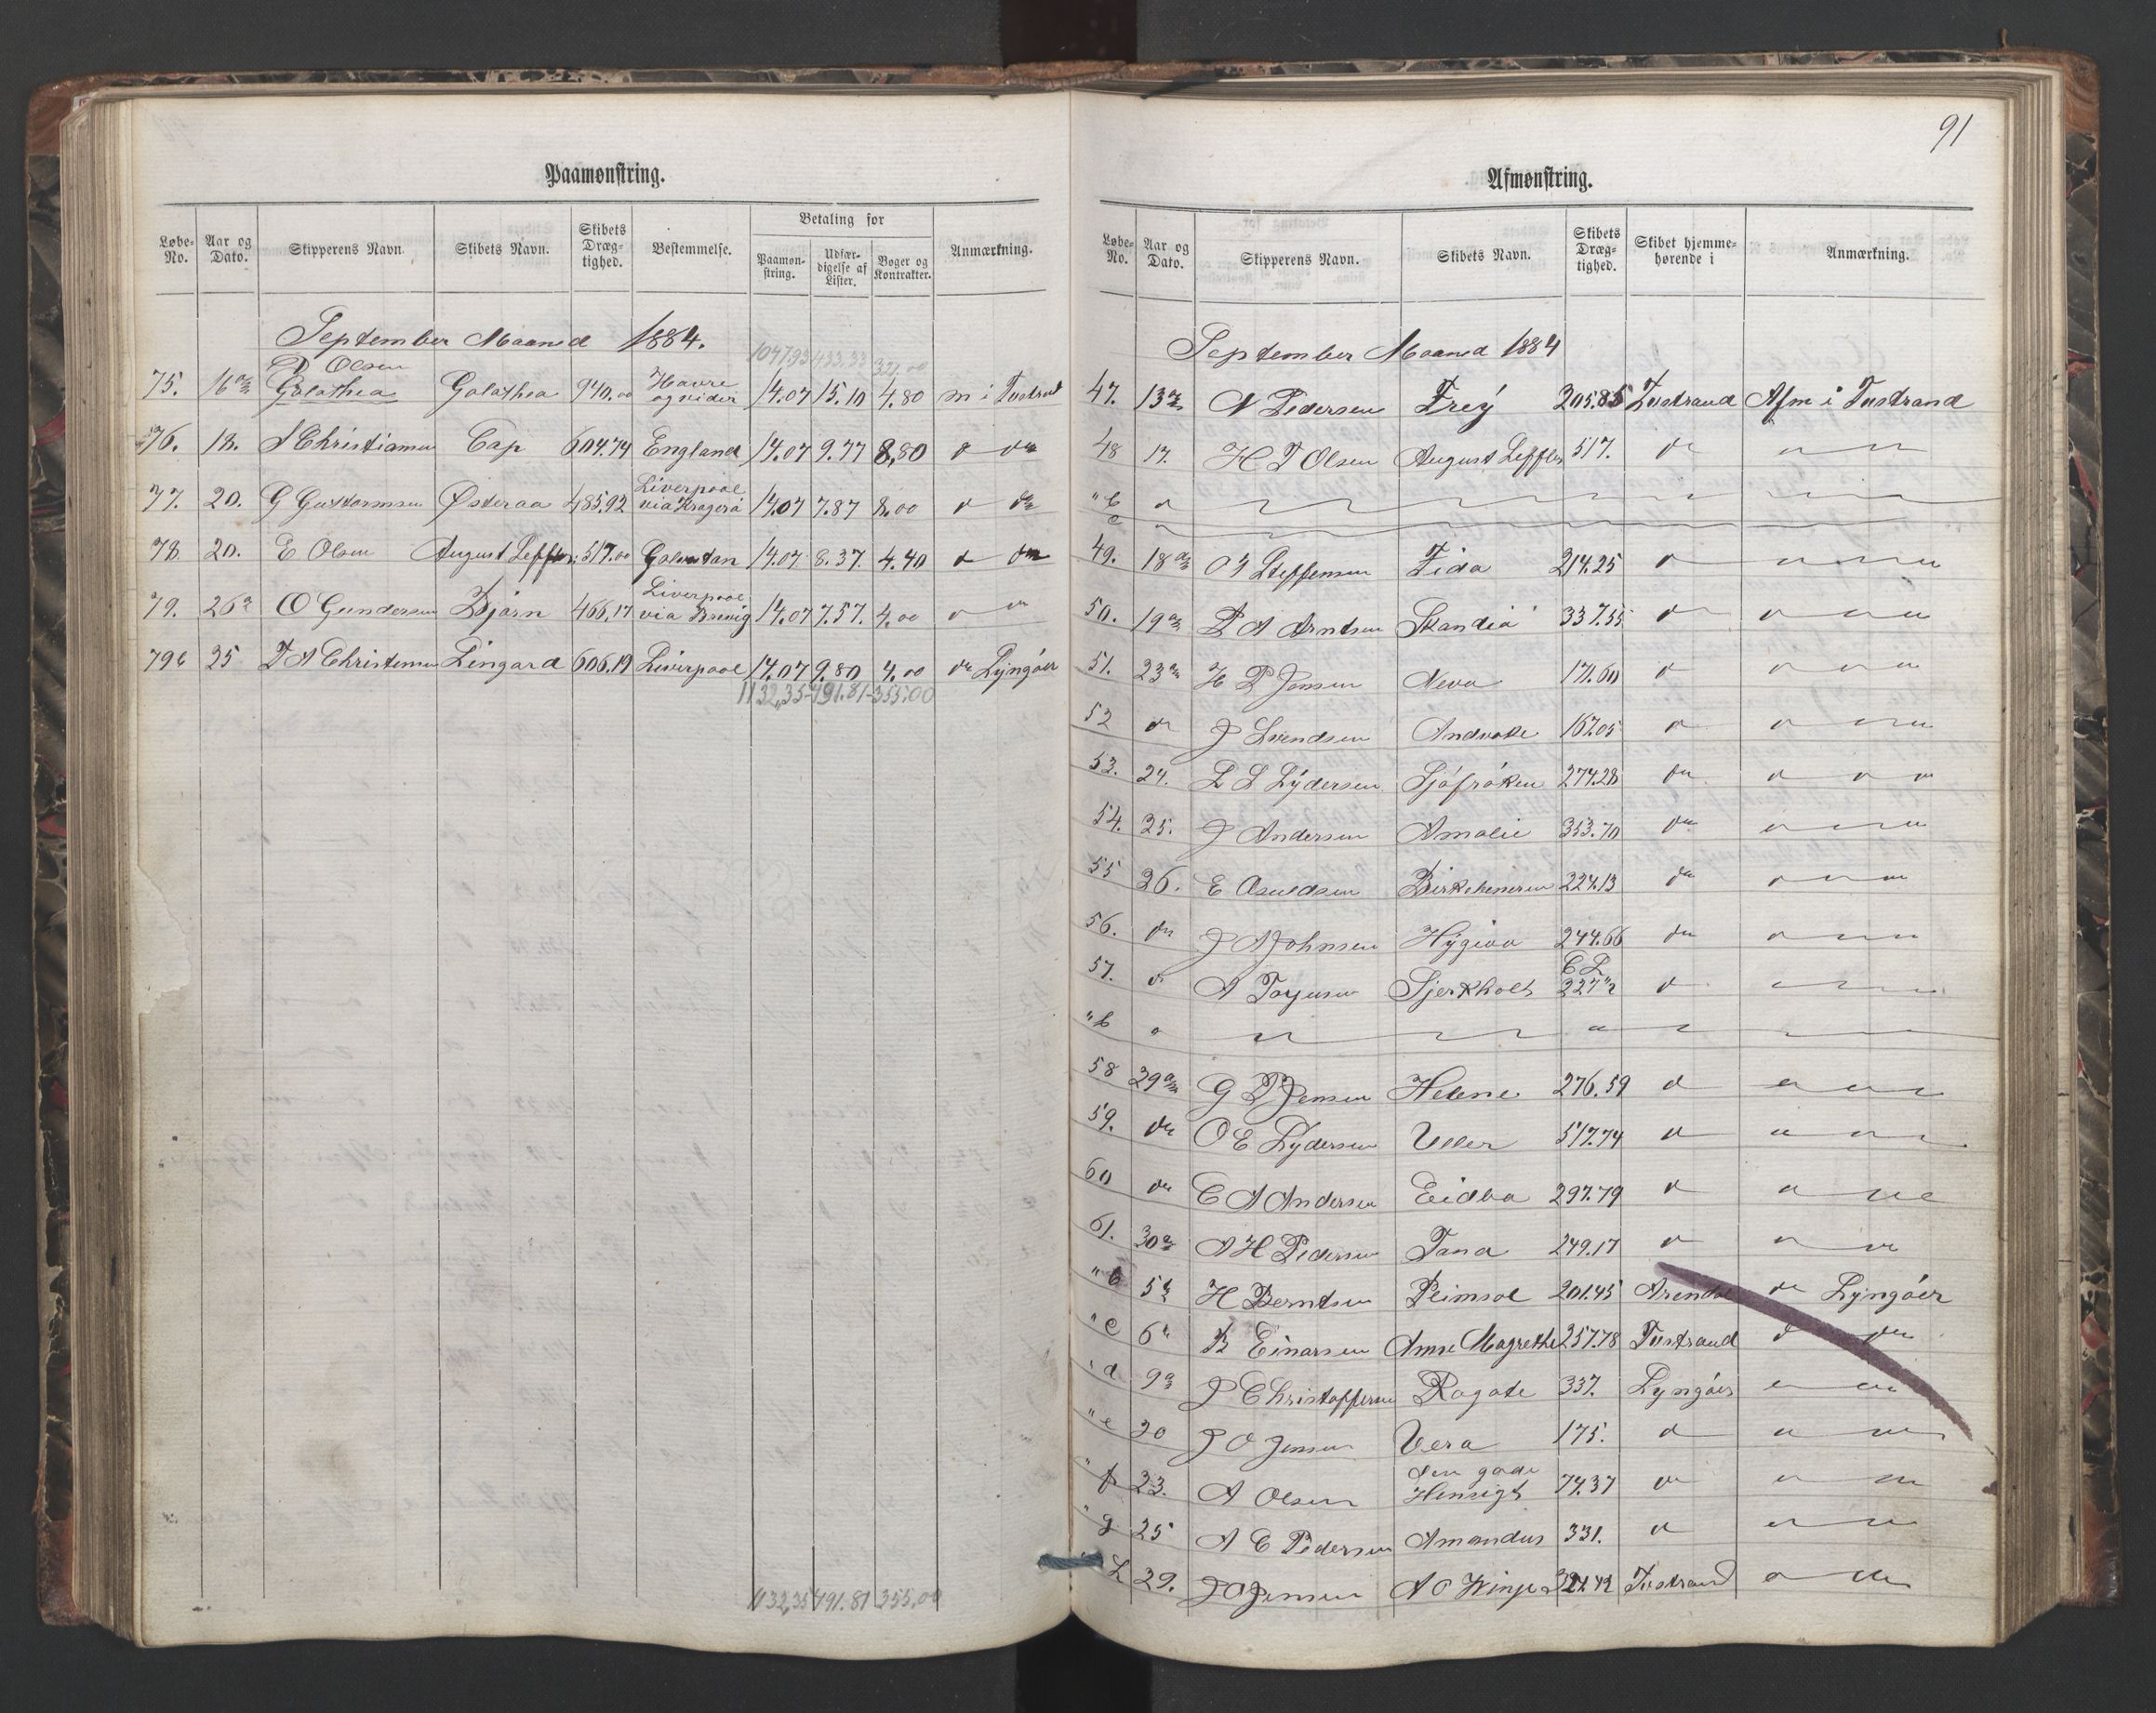 Paamønstring.
Løbe-No. Aar og Dato. Skipperens Navn. Skibets Navn. Skibets Dræg-tighed. Bestemmelse. Betaling for Paamøn-string. Udfær-digelse af Lister. Bøger og Kontrakter. Anmærkning.
September Maaned 1884.
1047.93 433.33 321.00
D Olsen
75. 16 Galathea Galathea 940.00 Havre og vider 14.07 15.10 4.80 m i Tvestrand
76. 18. S Christiansen Cap 604.74 England 14.07 9.77 8,80 d do
77. 20. G Guttormsen Østeraa 485.92 Liverpool via Kragerø 14.07 7.87 8.00 d do
78. 20. E Olsen August Leffler 517.00 Galvestan 14.07 8.37. 4.40 d do
79. 26 O Gundersen Bjørn 466,17 Liverpool via Brevig 14.07 7.57. 4,00 d do
79 b 25 T A Christensen Lingard 606.19 Liverpool 14,07 9.80 4,00 do Lyngøer
1132,35 491.81 355.00
1132,35 491.81 355,00
91
Afmønstring.
Løbe-No. Aar og Dato. Skipperens Navn. Skibets Navn. Skibets Dræg-tighed. Skibet hjemme-hørende i Anmærkning.
September Maaned 1884
47. 13 N Pedersen Frey 205.85 Tvestrand Afm i Tvestrand
48 17. H T Olsen August Leffler 517. do
" b d
c
49. 18 O Steffensen Fida 214.25 d
50. 19 P A Arntsen Skandia 337.55 d
51. 23 H P Jensen Neva 171.60 d
52 do J Svendsen Andvake 167.05 d
53. 24. L L Lydersen Sjøfrøken 274.28 do
54. 25. J Andersen Amalie 353.70 do
55 26. E Osuldsen Birkebeineren 224.13 do
56. do J A Johnsen Hygiea 244.66 do
57. d A Torjusen Stjerkholt C L 227 d
" b d
58 29 G P Jensen Helene 276.59 d
59. do O E Lydersen Uller 517.74 d
60 do C A Andersen Eidva 297.79 d
61. 30 A H Pedersen Tana 249.17 d
" b 5 H Berntsen Pleimsol 201.45 Arendal do Lyngøer
" c 6 B Einarsen Anne Magrethe 257.78 Tvestrand d do
" d 9 J Christoffersen Rogate 337. Lyngøer
" e 20 J O Jensen Vera 175. d
" f 23. A Olsen den gode Hensigt 74.37 do
" g 25 A E Pedersen Amandus 331. d
29. J O Jensen A O Vinje Tvestrand